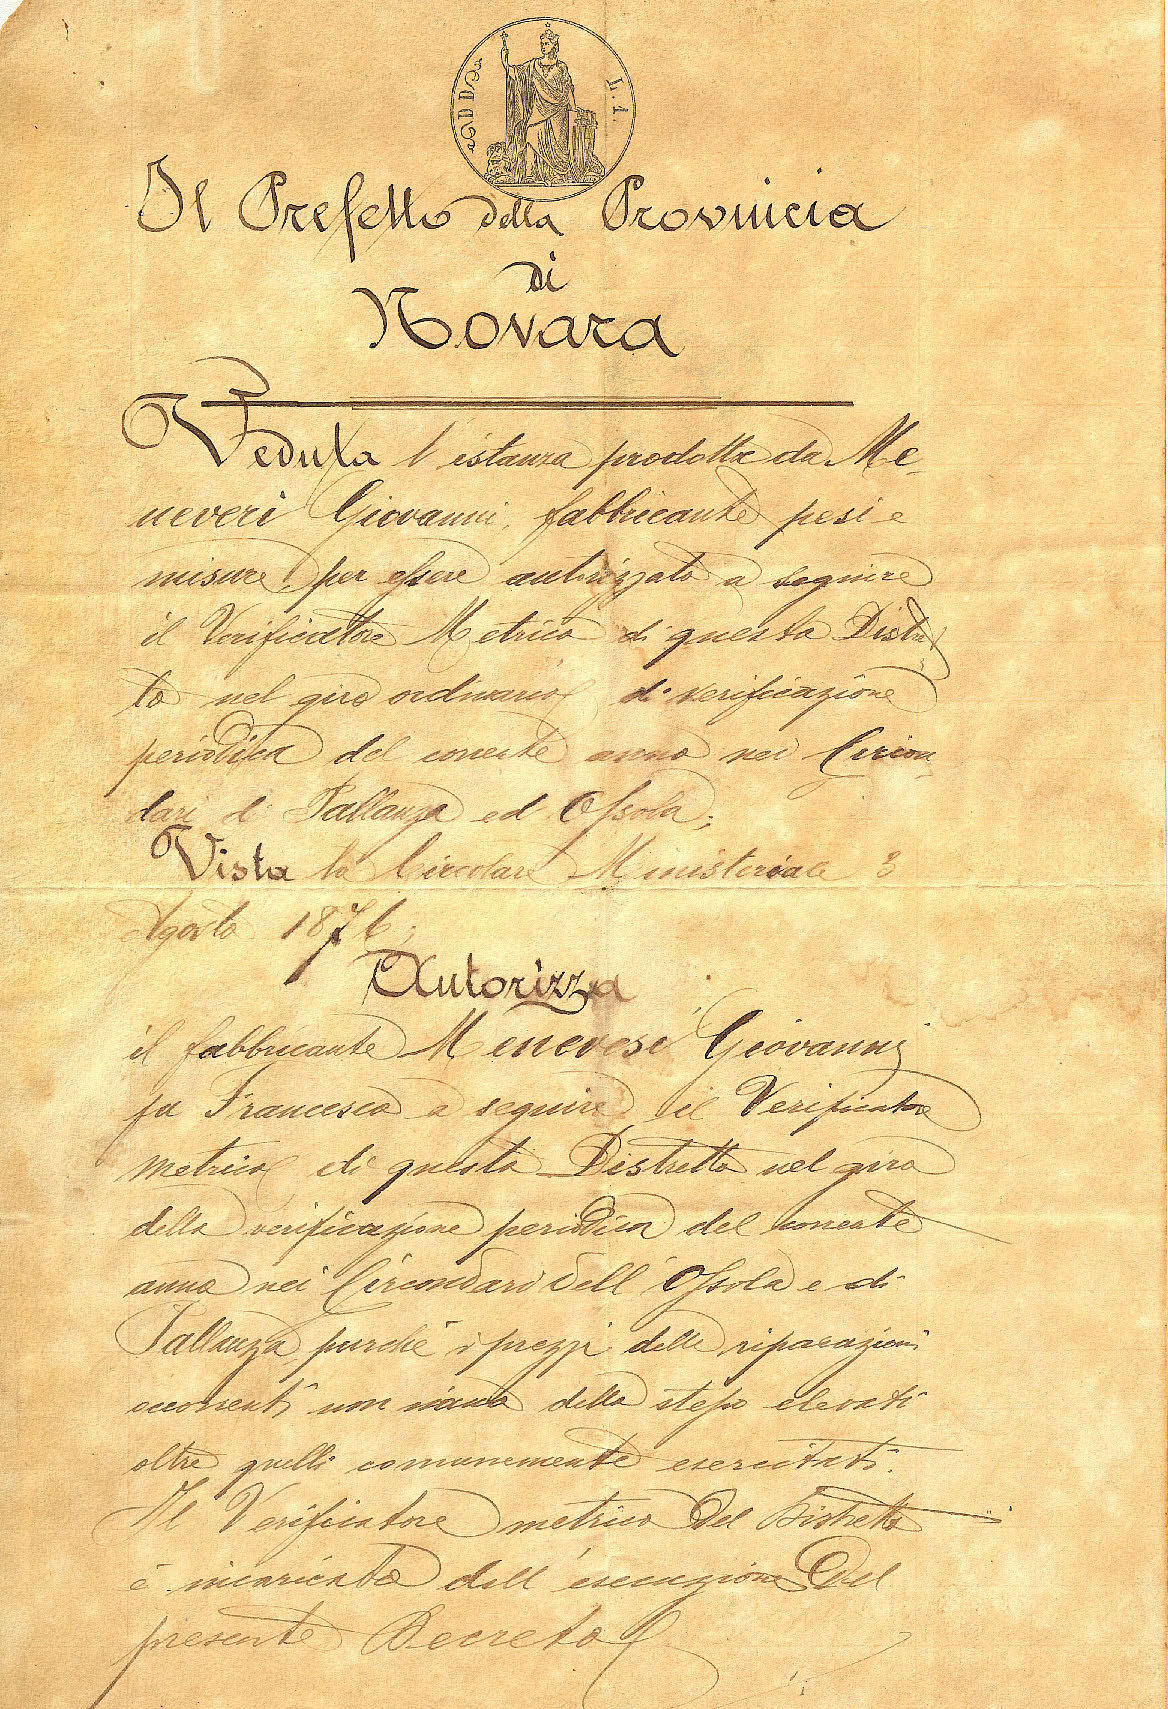 L. 1.
Il Prefetto della Provinicia
di
Novara
Veduta l'istanza prodotta da Me-
neveri Giovanni, fabbricante pesi e
misure, per essere autorizzato a seguire
il Verificatore Metrico di questo Distret
to nel giro ordinario di verificazione
periodica del corrente anno nei Circon
dari di Pallanza ed Ossola;
Vista la Circolare Ministeriale 3
Agosto 1876;
Autorizza
il fabbricante Meneveri Giovanni
fu Francesco a seguire il Verificatore
metrico di questo Distretto nel giro
della verificazione periodica del corrente
anno nei Circondari dell'Ossola e di
Pallanza, purchè i prezzi delle riparazioni
occorrenti non siano dello stesso elevati
oltre quelli comunemente esercitati.
Il Verificatore metrico del Distretto
è incaricato dell'esecuzione del
presente Decreto